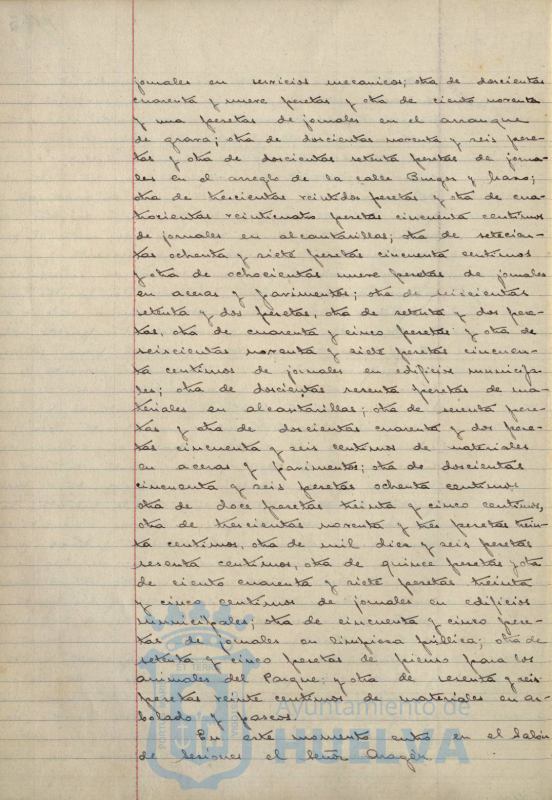 jornales en servicios mecanicos; otra de doscientas
cuarenta y nueve pesetas y otra de ciento noventa
y una pesetas de jornales en el arranque
de grava; otra de doscientas noventa y seis pese-
tas y otra de doscientas setenta pesetas de jorna-
les en el arreglo de la calle Burgos y Mazo;
otra de trescientas veintidos pesetas y otra de cua-
trocientas veinticuatro pesetas cincuenta centimos
de jornales en alcantarillas; otra de setecien-
tas ochenta y siete pesetas cincuenta centimos
y otra de ochocientas nueve pesetas de jornales
en aceras y pavimentos; otra de seiscientas
setenta y dos pesetas, otra de setenta y dos pese-
tas, otra de cuarenta y cinco pesetas y otra de
seiscientas noventa y siete pesetas cincuen-
ta centimos de jornales en edificios municipa-
les; otra de doscientas sesenta pesetas de ma-
teriales en alcantarillas; otra de sesenta pese-
tas y otra de doscientas cuarenta y dos pese-
tas cincuenta y seis centimos de materiales
en aceras y pavimentos; otra de doscientas
cincuenta y seis pesetas ochenta centimos
otra de doce pesetas treinta y cinco centimos,
otra de trescientas noventa y tres pesetas trein-
ta centimos, otra de mil diez y seis pesetas
sesenta centimos, otra de quince pesetas y otra
de ciento cuarenta y siete pesetas treinta
y cinco centimos de jornales en edificios
municipales; otra de cincuenta y cinco pese-
tas de jornales en limpieza pública; otra de
setenta y cinco pesetas de pienso para los
animales del Parque; y otra de sesenta y seis
pesetas veinte centimos de materiales en ar-
bolado y paseos.
En este momento entró en el Salón
de Sesiones el Señor Aragón.
Ayuntamiento de
HUELVA